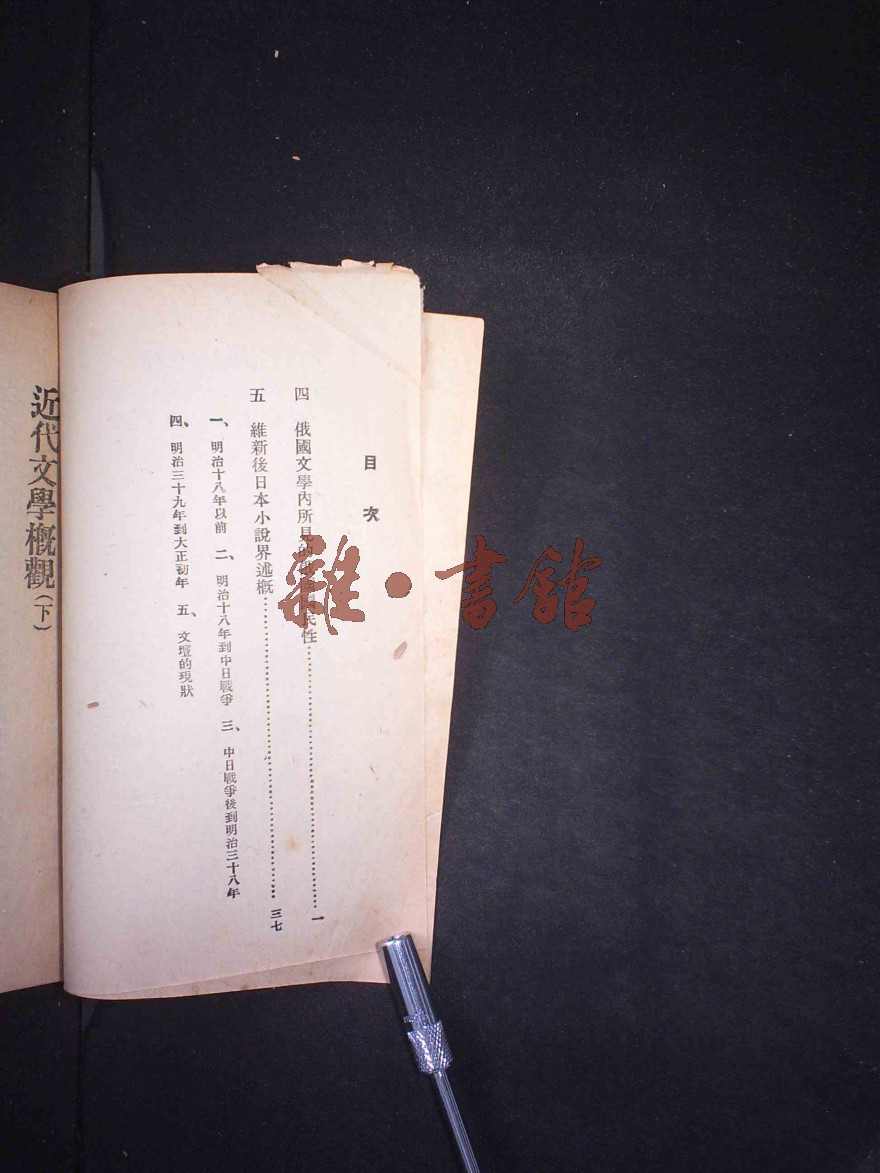 目次
四 俄國文學內所見的國民性……一
五 維新後日本小說界述概……三七
一、明治十八年以前 二、明治十八年到中日戰爭 三、中日戰爭後到明治三十八年
四、明治三十九年到大正初年 五、文壇的現狀
近代文學概觀(下)
雜·書館